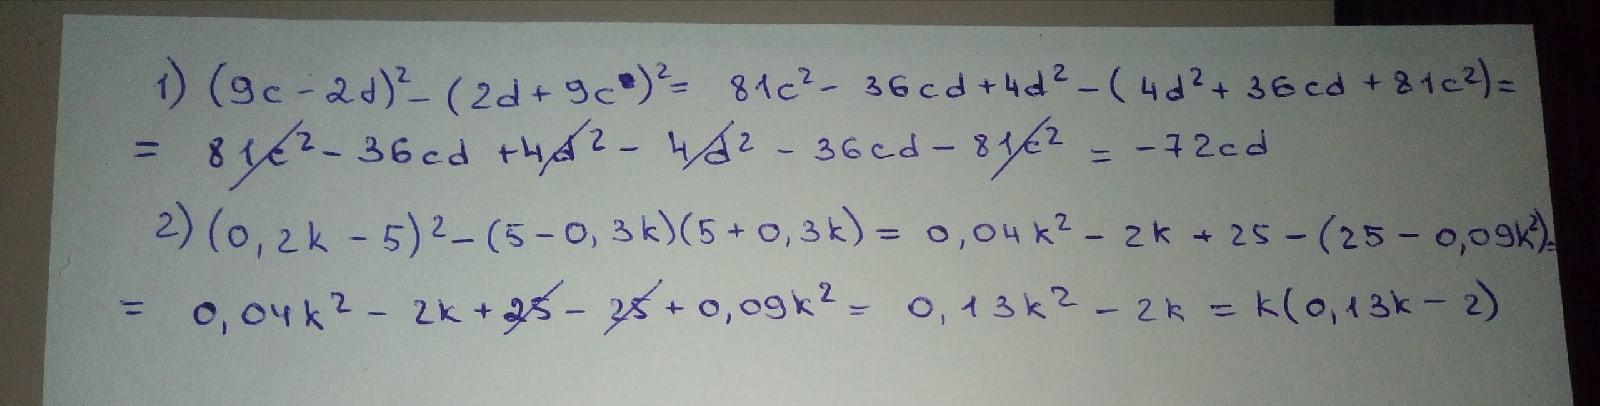 1) (9c - 2d)² - (2d + 9c)² = 81c² - 36cd + 4d² - (4d² + 36cd + 81c²) =
= 81c² - 36cd + 4d² - 4d² - 36cd - 81c² = -72cd
2) (0,2k - 5)² - (5 - 0,3k)(5 + 0,3k) = 0,04k² - 2k + 25 - (25 - 0,09k²) =
= 0,04k² - 2k + 25 - 25 + 0,09k² = 0,13k² - 2k = k(0,13k - 2)